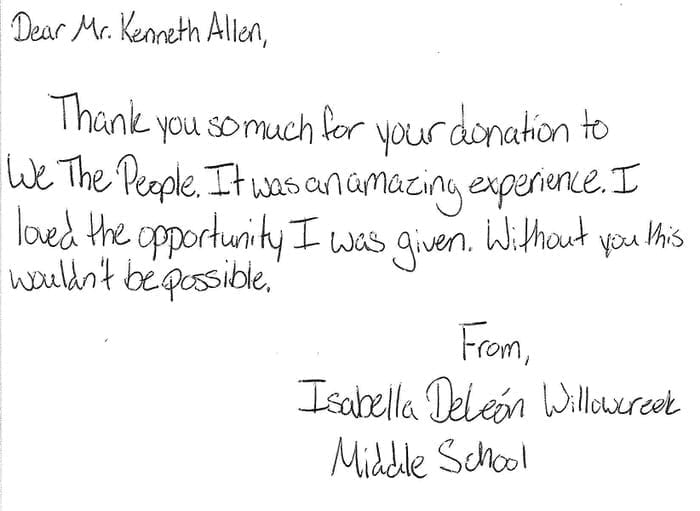 Dear Mr. Kenneth Allen,
Thank you so much for your donation to
We The People. It was an amazing experience. I
loved the opportunity I was given. Without you this
wouldn't be possible.
From,
Isabella DeLeón Willowcreek
Middle School